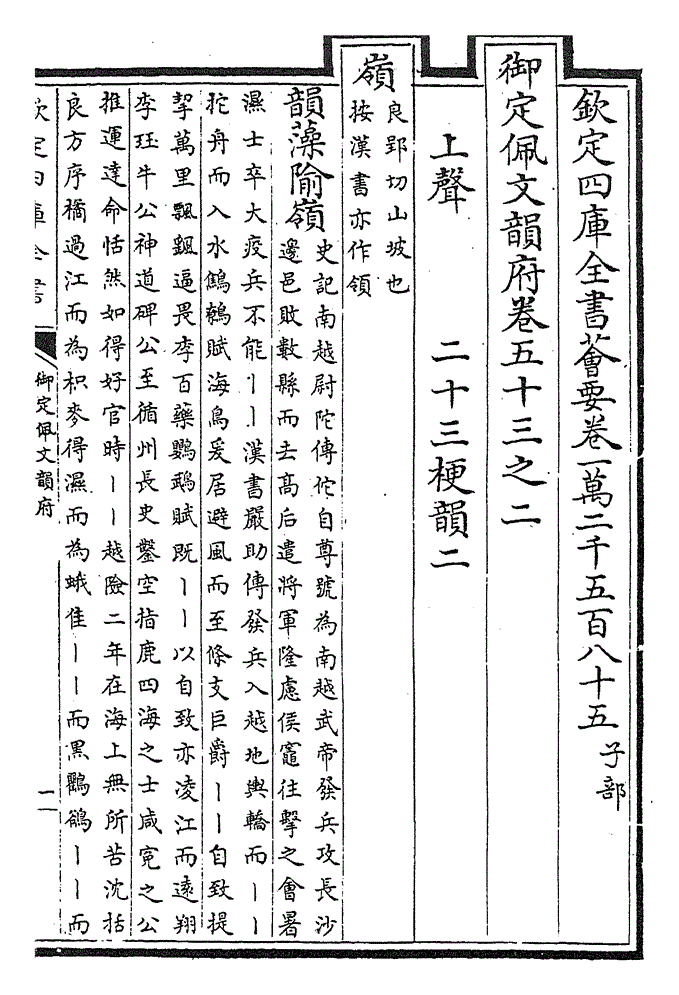 欽定四庫全書薈要卷一萬二千五百八十五 子部
御定佩文韻府卷五十三之二
上聲 二十三梗韻二
嶺 良郢切山坡也
按漢書亦作領
韻藻 隃嶺 史記南越尉陀傳佗自尊號為南越武帝發兵攻長沙
邊邑敗數縣而去高后遣將軍隆慮侯竈往擊之會暑
濕士卒大疫兵不能丨丨漢書嚴助傳發兵入越地輿轎而丨丨
拕舟而入水鷦鷯賦海鳥爰居避風而至條支巨爵丨丨自致提
挈萬里飄飖逼畏李百藥鸚鵡賦既丨丨以自致亦凌江而遠翔
李珏牛公神道碑公至循州長史鑿空指鹿四海之士咸寃之公
推運達命恬然如得好官時丨丨越險二年在海上無所苦沈括
良方序橘過江而為枳麥得濕而為蛾隹丨丨而黑鸜鵒丨丨而
欽定四庫全書
御定佩文韻府
一